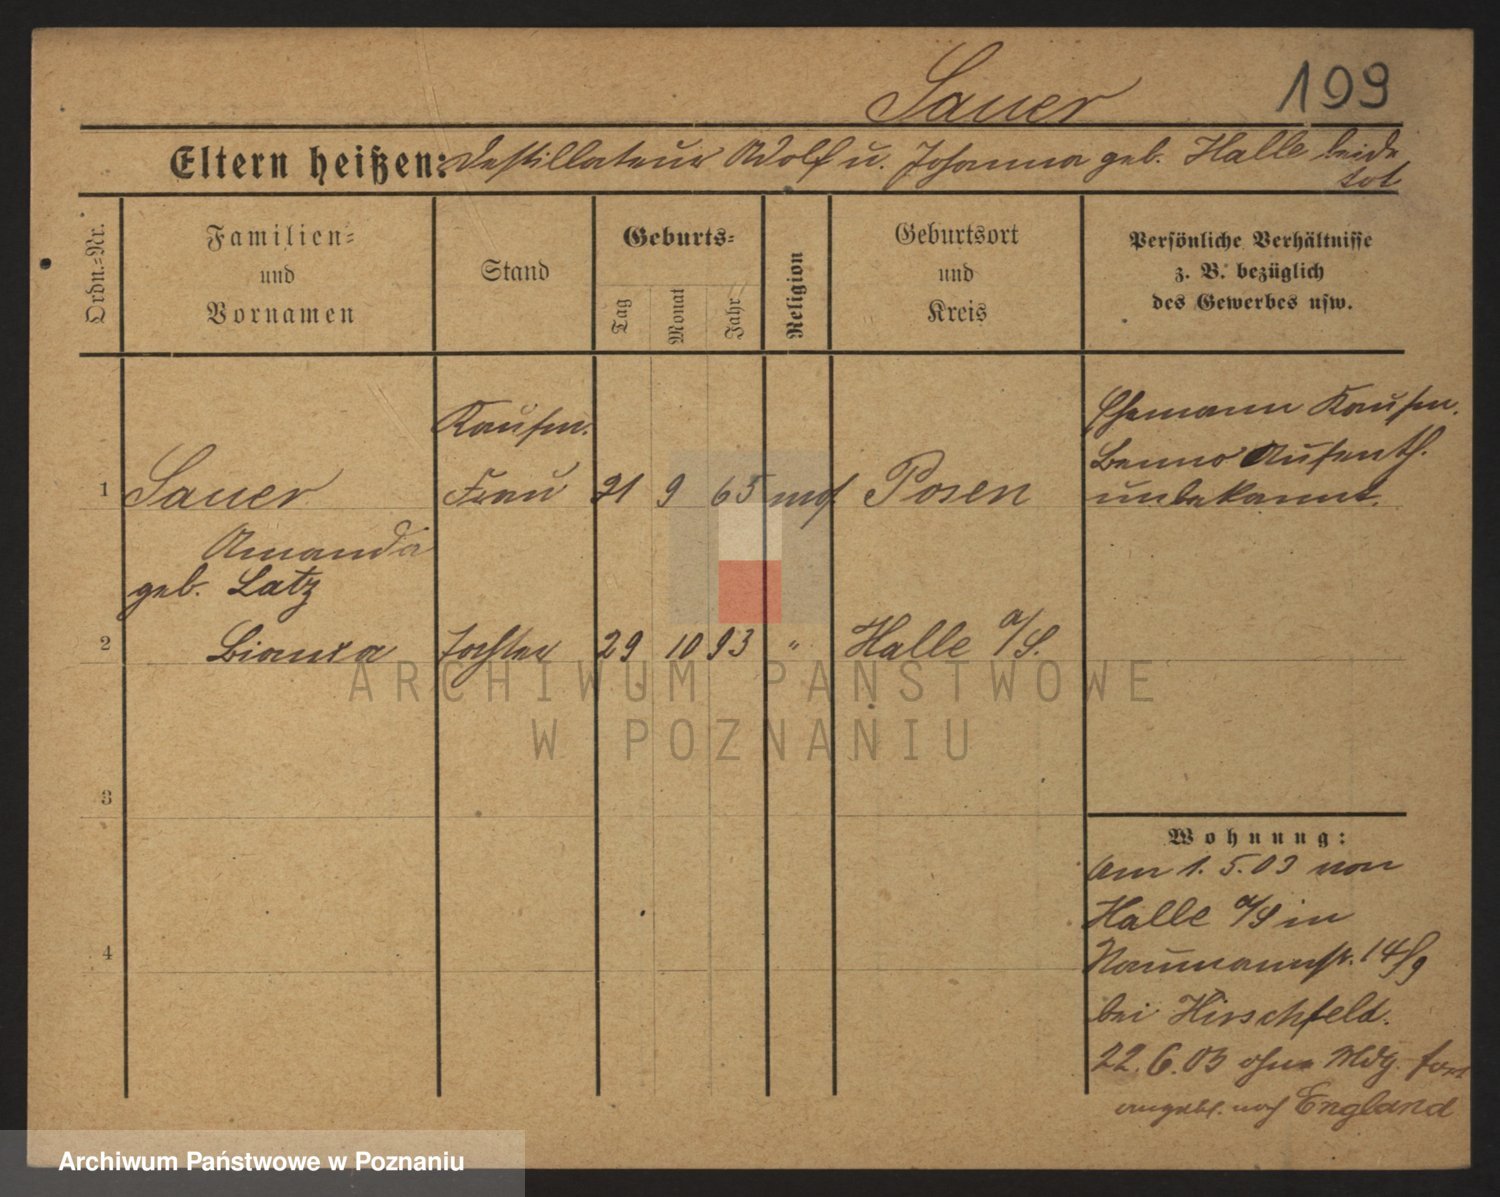 Sauer 199
Eltern heißen: Destillateur Adolf u. Johanna geb. Halle beide
tot
Ordn.-Nr.
Familien-
und
Vornamen
Stand
Geburts-
Tag
Monat
Jahr
Religion
Geburtsort
und
Kreis
Persönliche Verhältnisse
z. B. bezüglich
des Gewerbes usw.
Kaufm. Ehemann Kaufm.
Benno Aufenth.
1 Sauer Frau 21 9 65 mos. Posen unbekannt.
Amanda
geb. Latz
2 Bianca Tochter 29 10 93 " Halle a/S.
ARCHIWUM PAŃSTWOWE
W POZNANIU
3
Wohnung:
Am 1.5.03 von
Halle a/S in
4 Naumannstr. 14/9
bei Hirschfeld.
22.6.03 ohne Mldg. fort
angebl. nach England
Archiwum Państwowe w Poznaniu